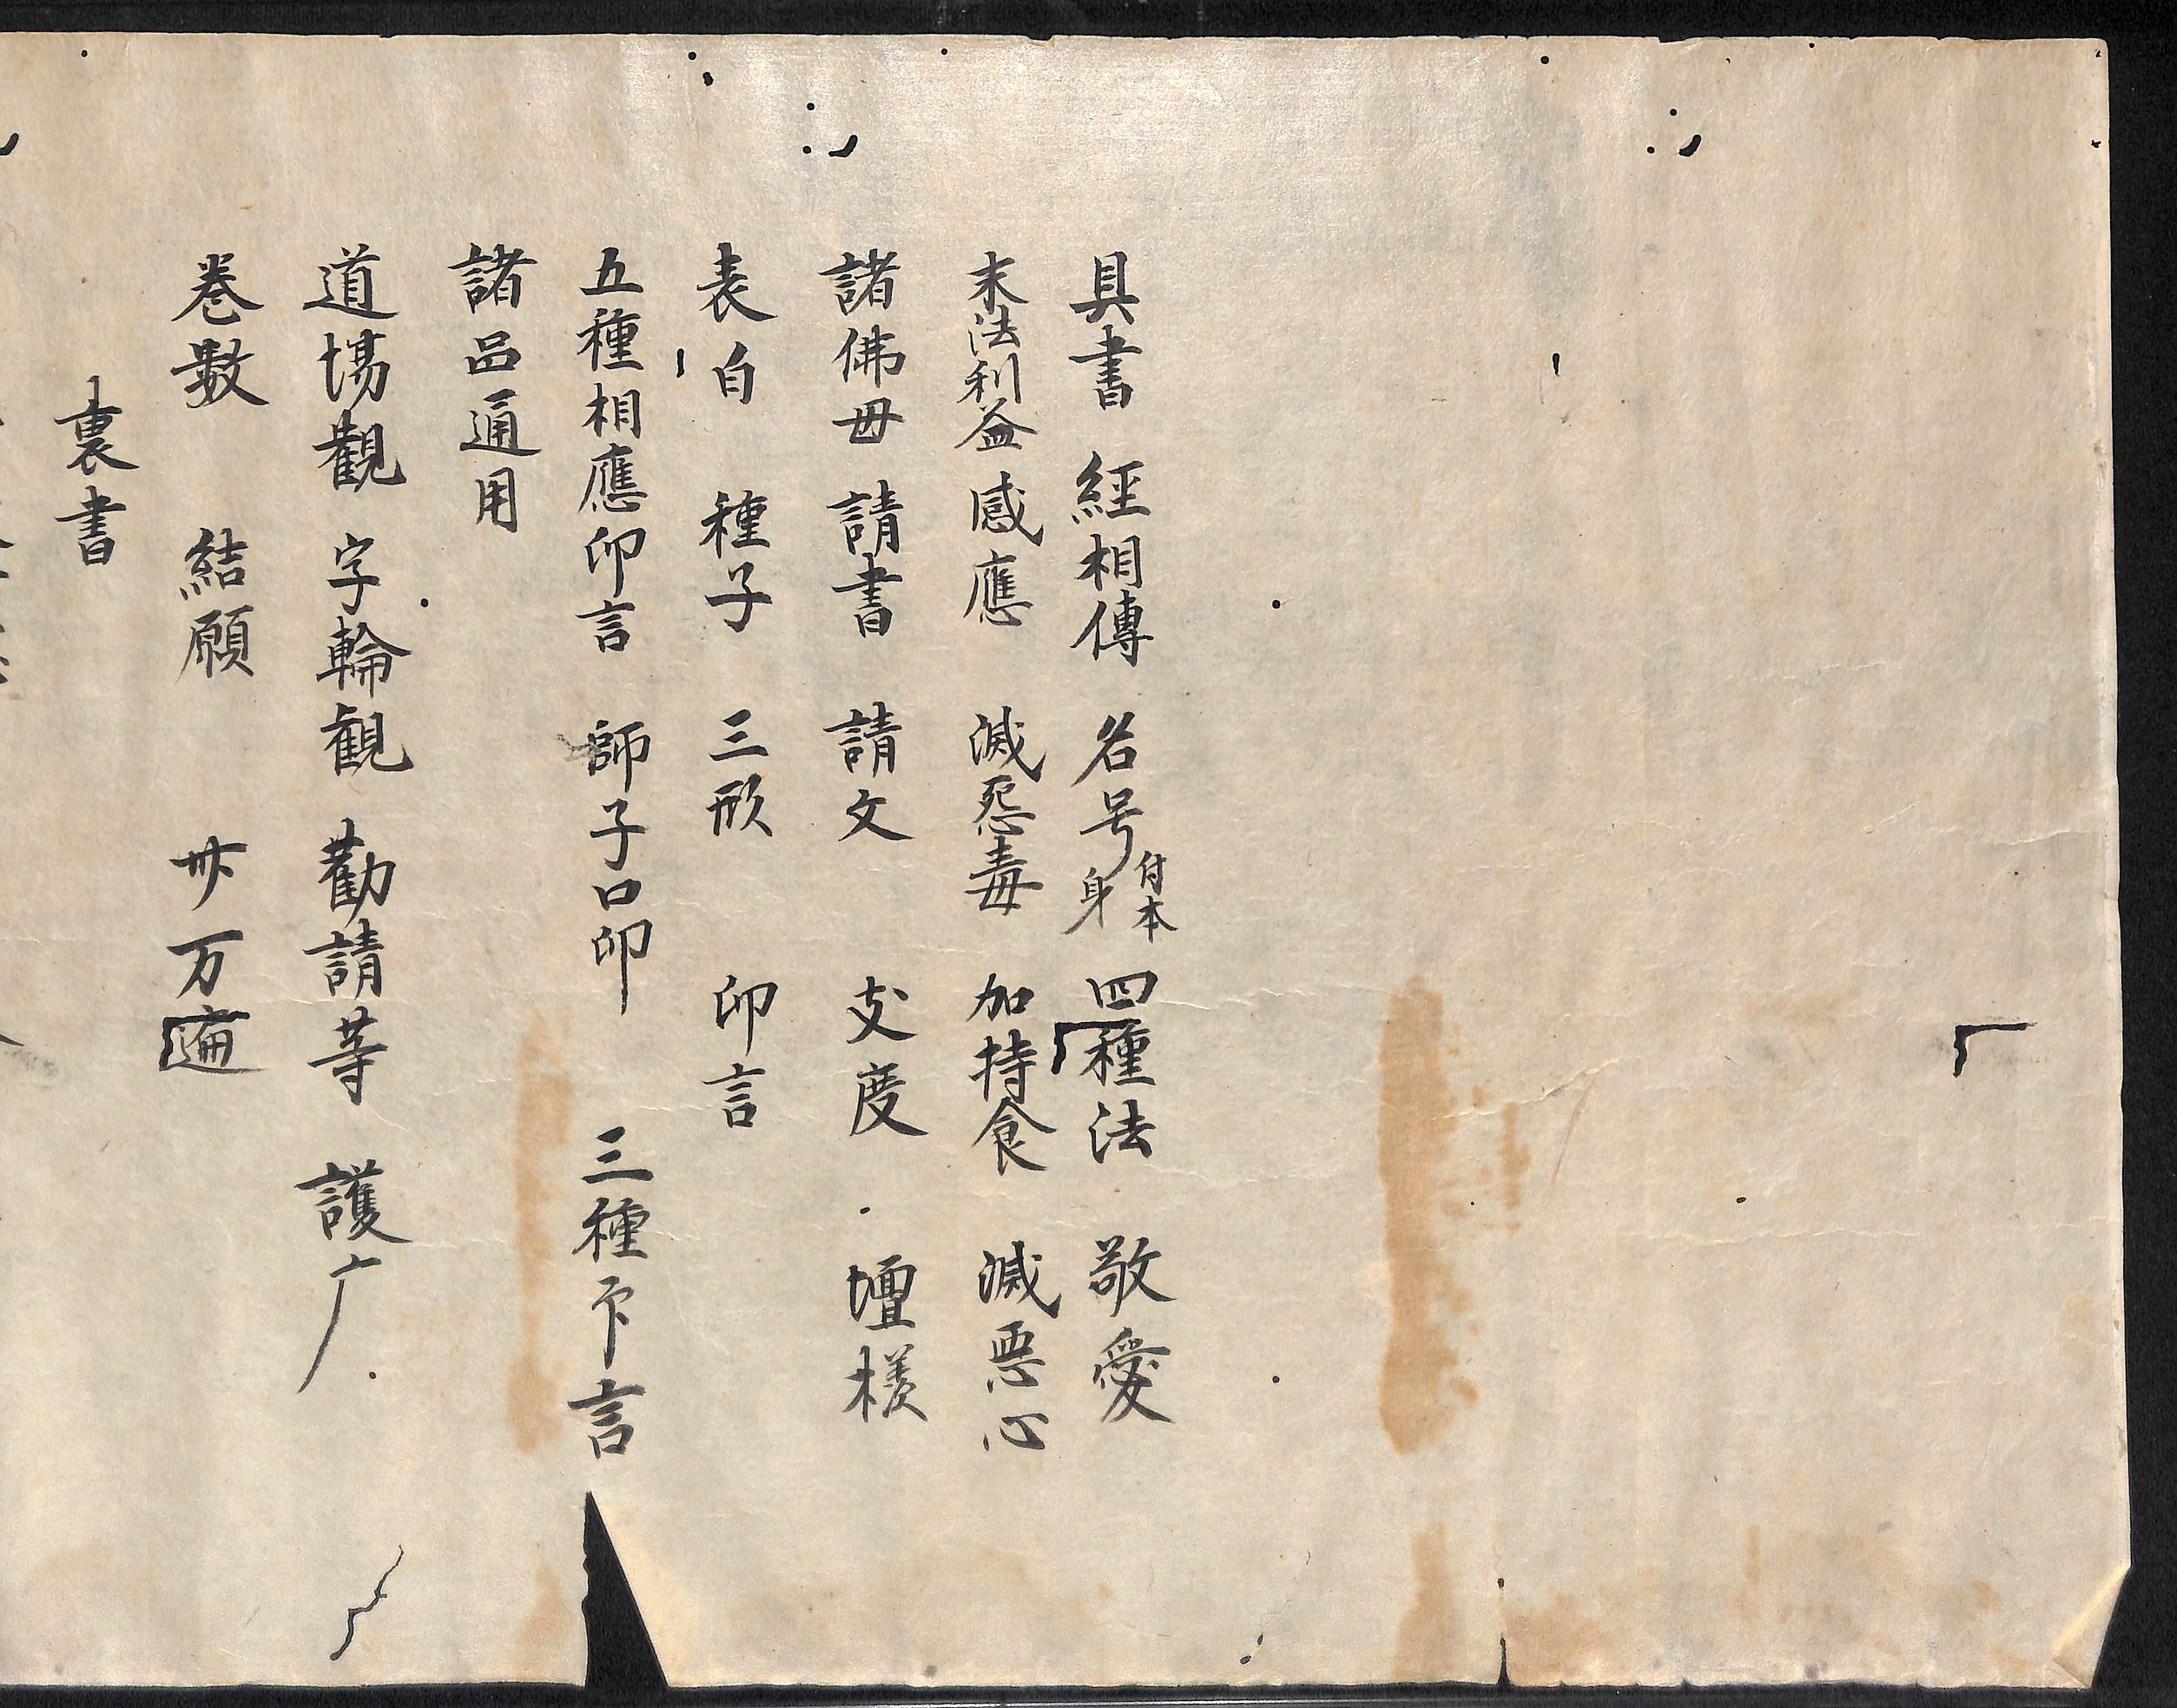 具書 經相傳 名号付本身 四種法 敬愛
末法利益 感應 滅惡毒 加持食 滅惡心
諸佛母 請書 請文 支度 壇樣
表白 種子 三形 印言
五種相應印言 師子口印 三種印言
諸品通用
道場觀 字輪觀 勸請等 護广
巻數 結願 卅万遍
裏書